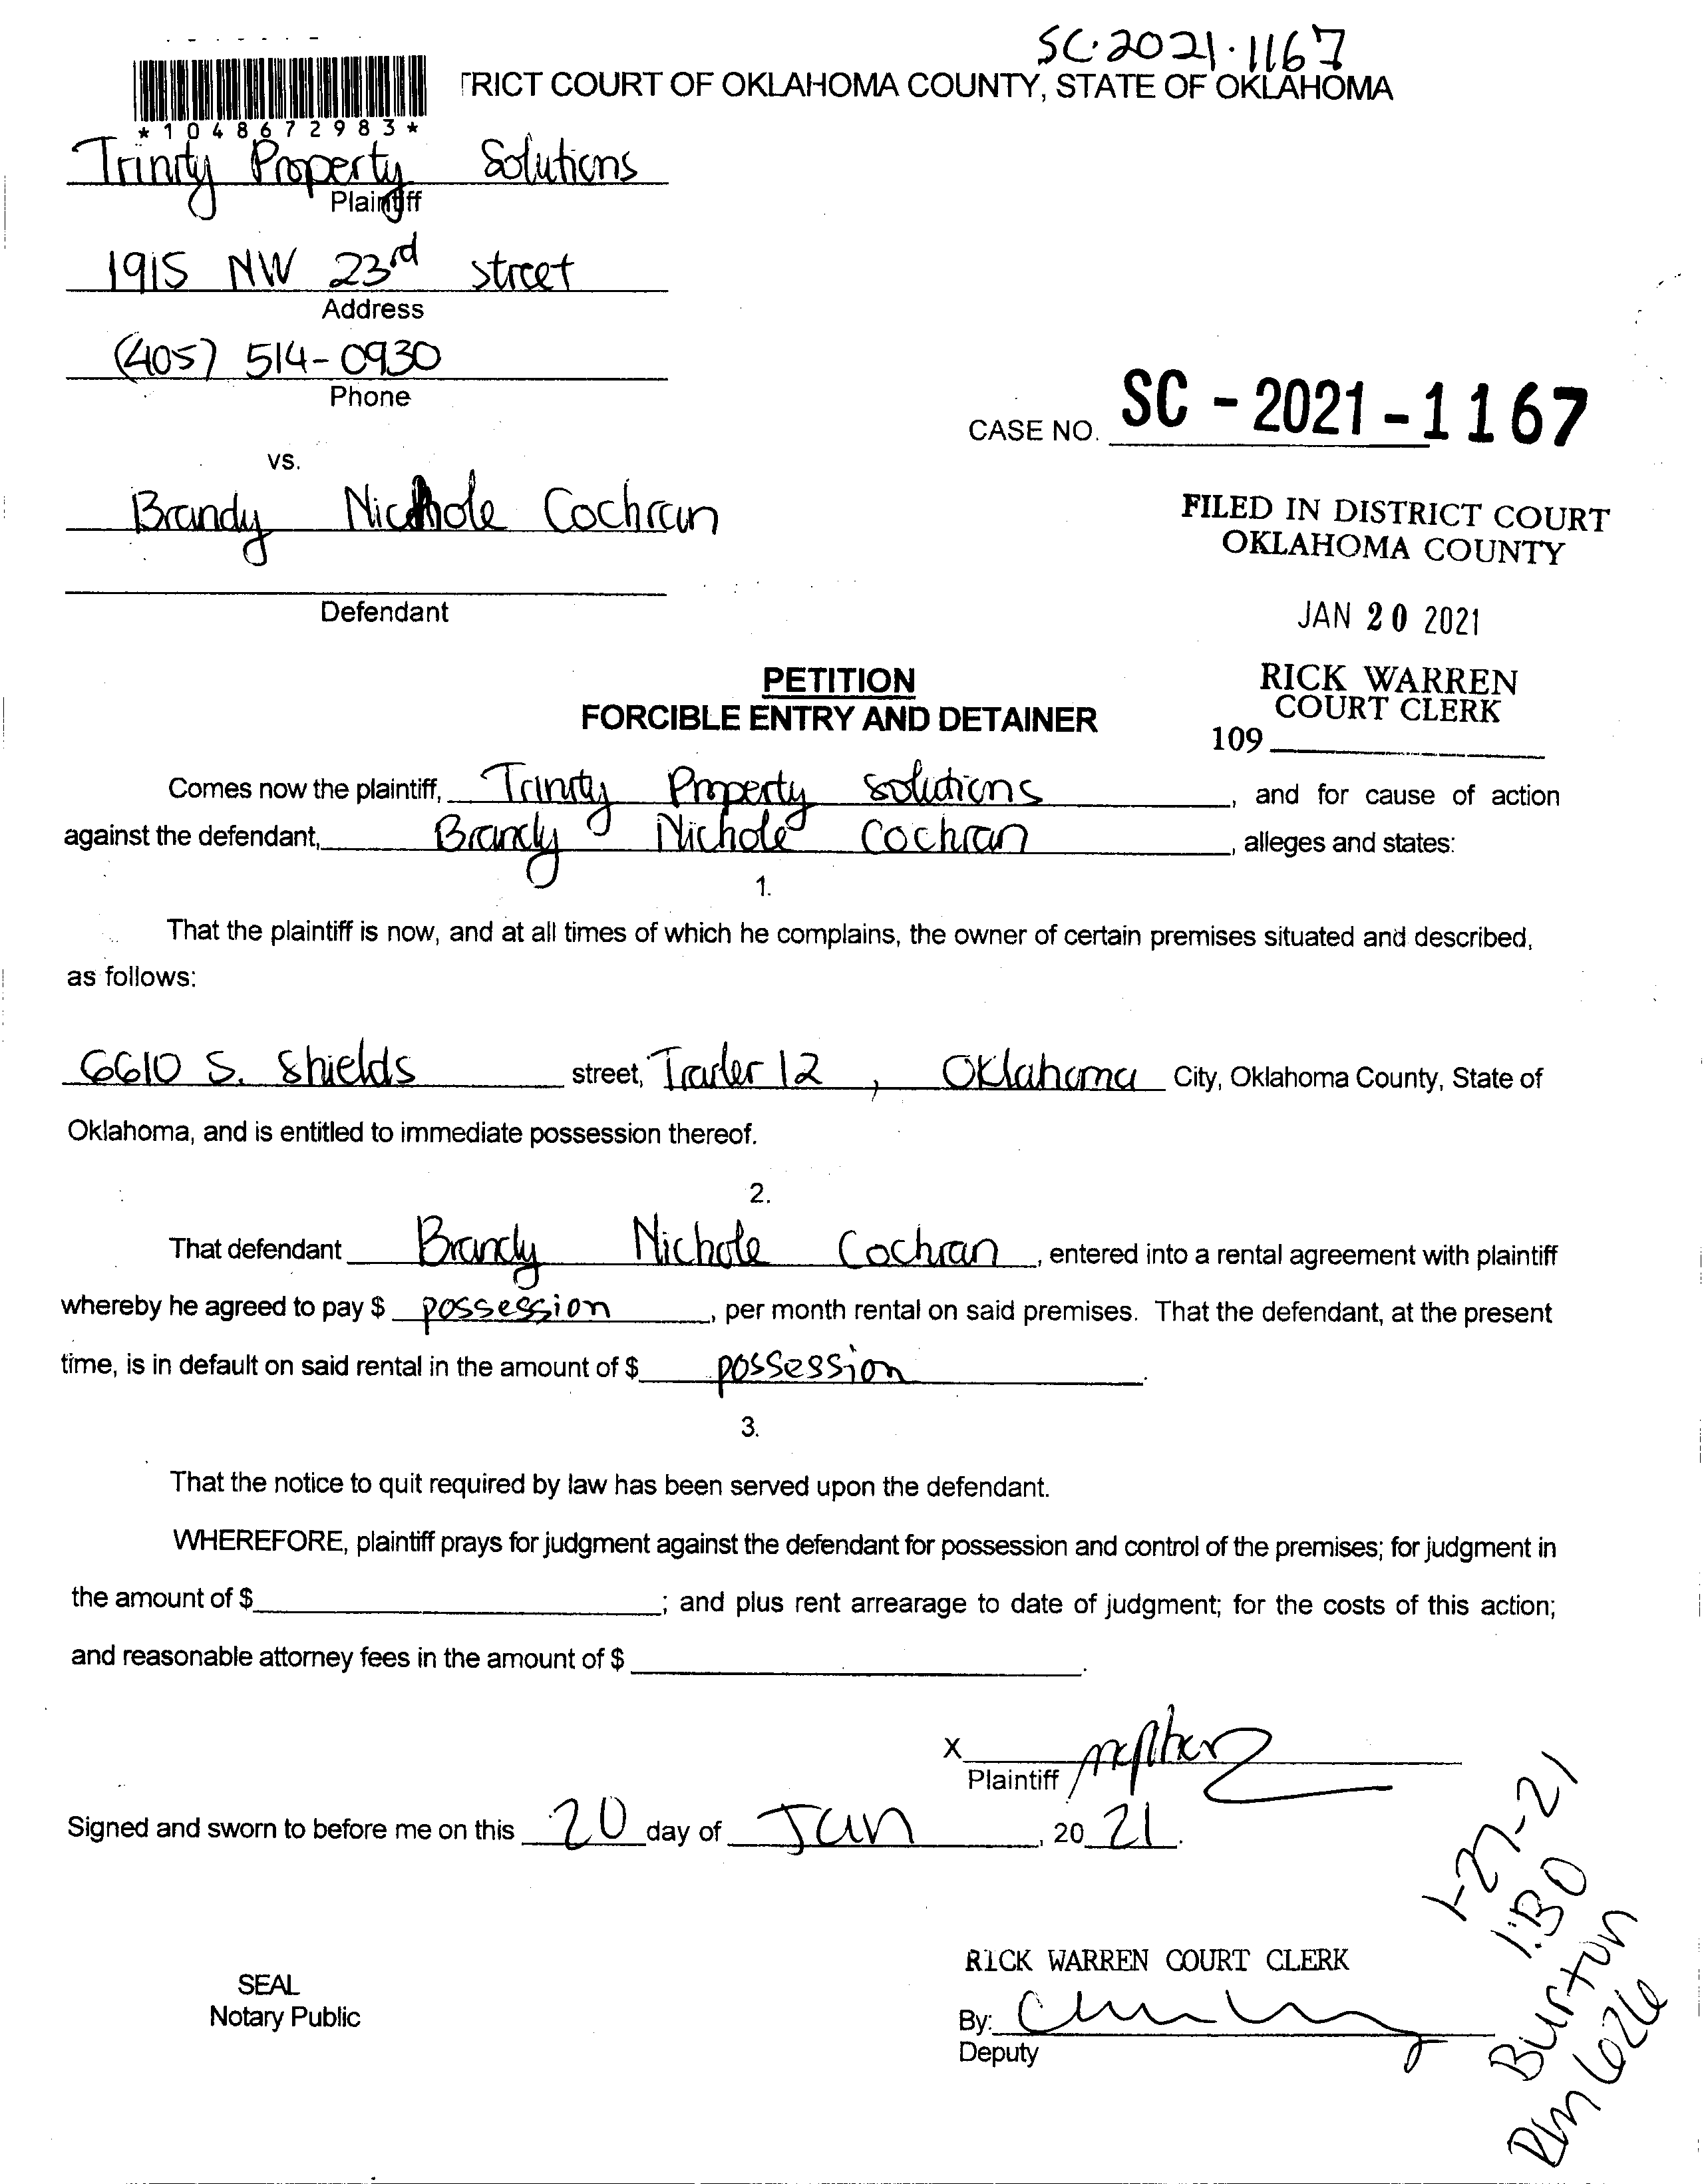 SC-2021-1167
TRICT COURT OF OKLAHOMA COUNTY, STATE OF OKLAHOMA
*1048672983*
Trinity Property Solutions
Plaintiff
1915 NW 23rd street
Address
(405) 514-0930
Phone
CASE NO. SC-2021-1167
vs.
Brandy Nichole Cochran
FILED IN DISTRICT COURT
OKLAHOMA COUNTY
Defendant
JAN 20 2021
PETITION
FORCIBLE ENTRY AND DETAINER
RICK WARREN
COURT CLERK
109
Comes now the plaintiff, Trinity Property solutions, and for cause of action
against the defendant, Brandy Nichole Cochran, alleges and states:
1.
That the plaintiff is now, and at all times of which he complains, the owner of certain premises situated and described,
as follows:
6610 S. Shields street, Trailer 12, Oklahoma City, Oklahoma County, State of
Oklahoma, and is entitled to immediate possession thereof.
2.
That defendant Brandy Nichole Cochran, entered into a rental agreement with plaintiff
whereby he agreed to pay $ possession, per month rental on said premises. That the defendant, at the present
time, is in default on said rental in the amount of $ possession.
3.
That the notice to quit required by law has been served upon the defendant.
WHEREFORE, plaintiff prays for judgment against the defendant for possession and control of the premises; for judgment in
the amount of $ ; and plus rent arrearage to date of judgment; for the costs of this action;
and reasonable attorney fees in the amount of $ .
X
Plaintiff
Signed and sworn to before me on this 20 day of Jan, 20 21.
1-27-21
1:30
Burton
Rm 626
RICK WARREN COURT CLERK
SEAL
Notary Public
By:
Deputy